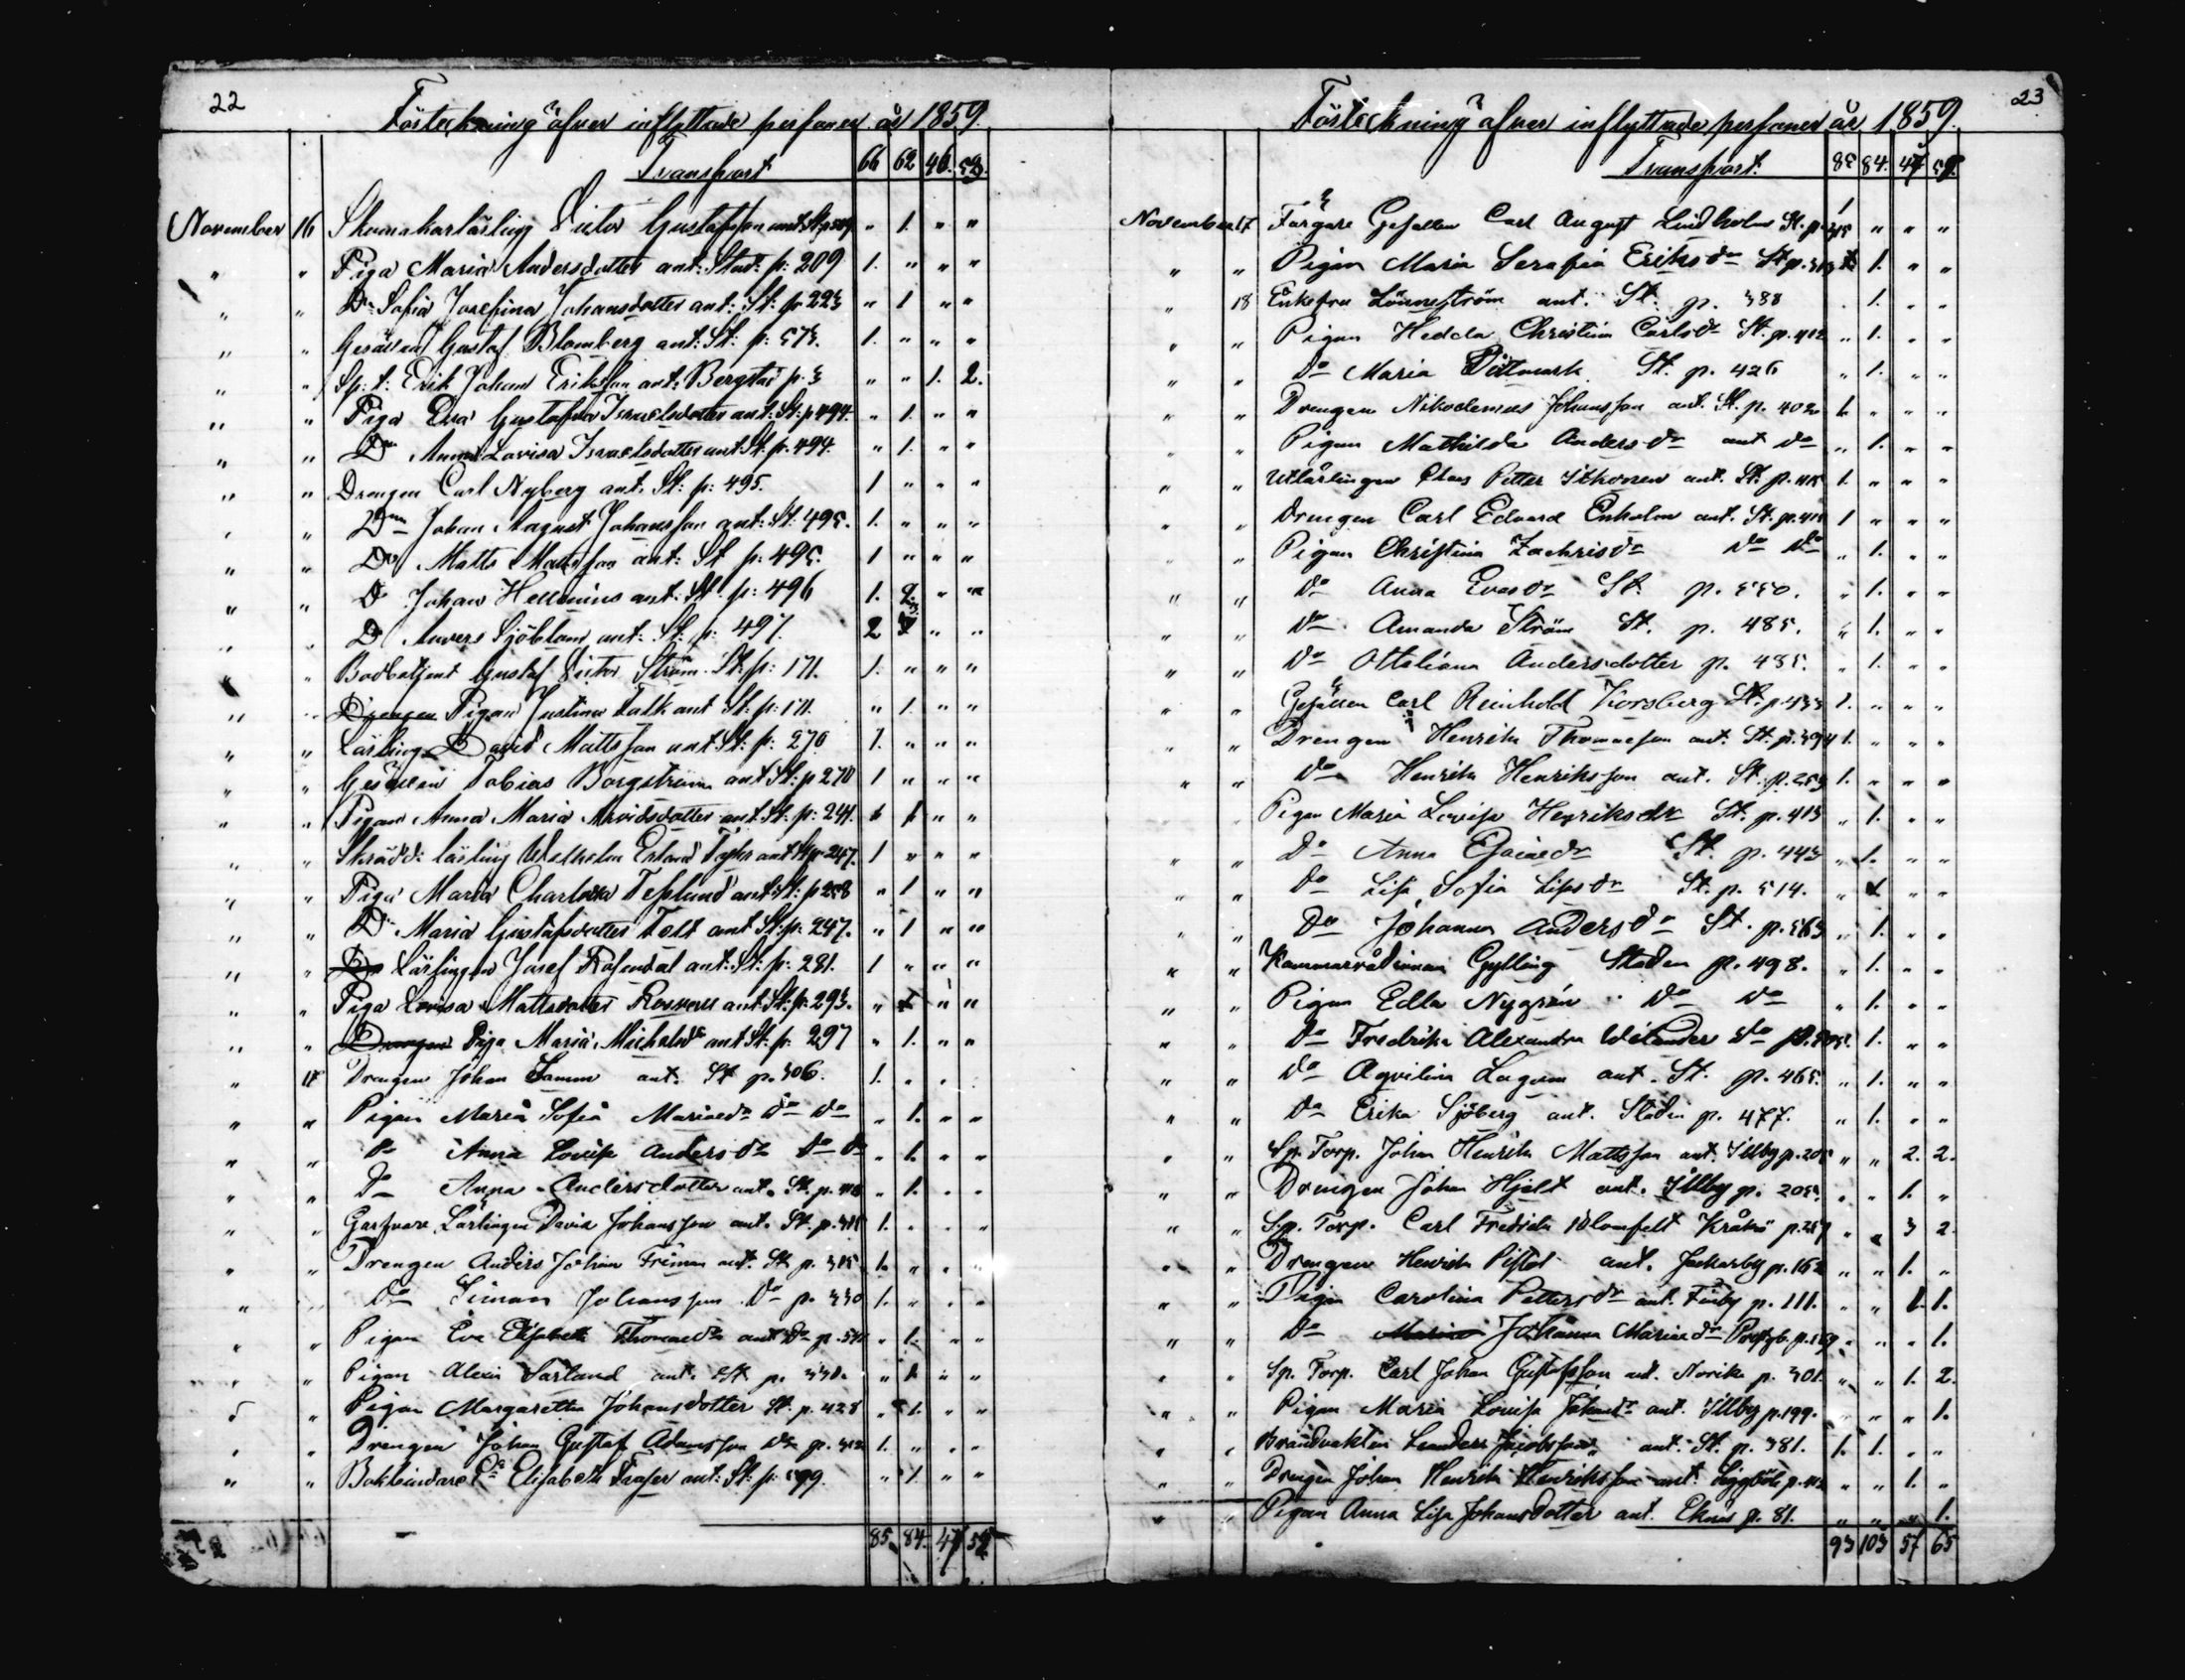 22
Förteckning öfver inflyttade personer år 1859.
Transport 66 62 46. 53.
November 16 Skomakarlärling Victor Gustafsson ant: St: p: " 1. " "
" " Piga Maria Andersdotter ant: Stad: p: 209 1. " " "
" " Do Sofia Josefina Johansdotter ant: St: p: 223 " 1 " "
" " Gesällen Gustaf Blomberg ant: St: p: 573. 1. " " "
" " Sp: t: Erik Johan Eriksson ant: Bergstad p. 3 " " 1. 2.
" " Piga Eva Gustafva Israelsdotter ant: St: p 494. " 1. " "
" " Do Anna Lovisa Israelsdotter ant St. p. 494. " 1. " "
" " Drengen Carl Nyberg ant. St: p: 495. 1 " " "
" " Don Johan August Johansson ant: St: 495. 1. " " "
" " Do Matts Mattsson ant: St p: 495. 1 " " "
" " Do Johan Hellenius ant: St: p: 496 1. 2. " "
" " Do Anders Sjöblom ant: St: p: 497. 2 " "
" Bodbetjent Gustaf Victor Ström St: p: 171. 1. " " "
" " Drengen Pigan Justina Falk ant St: p: 171. " 1. " "
" " Lärling David Mattsson ant St: p: 270 1. " " "
" " Gesällen Tobias Borgström ant St: p 270 1 " " "
" " Pigan Anna Maria Arvidsdotter ant St: p: 241. " 1 " "
" " Skrädd: lärling Wilhelm Erland ant St p 247. 1 " " "
" " Piga Maria Charlotta Teslund ant: St: p 258 " 1 " "
" " Do Maria Gustafsdotter Tolt ant St: p: 247. " 1 " "
" " Do Lärlingen Josef Rosendal ant: St: p: 281. 1 " " "
" " Piga Lovisa Mattsdotter ant St: p: 293. " 1 " "
" " Drengen Piga Maria Michelsdr ant St: p: 297 " 1. " "
" 17 Drengen Johan Lamm ant. St p. 306. 1. " " "
" " Pigan Maria Sofia Mariaedr Do Do " 1. " "
" " Do Anna Lovisa Andersdr Do Do " 1. " "
" " Do Anna Andersdotter ant. St. p. " 1. " "
" " Garfvare Lärlingen David Johansson ant. St. p. 1. " " "
" " Drengen Anders Johan Friman ant. St p. 315 1. " " "
" " Do Simon Johansson Do p. 330 1. " " "
" " Pigan Eva Elisabeth Thomasdr ant Do p. " 1. " "
" " Pigan Alexia Sarland ant. St p. 330. " 1. " "
" " Pigan Margaretha Johansdotter St. p. 428 " 1. " "
" " Drengen Johan Gustaf Adamsson Do p. 312 1. " " "
" " Bokbindare Elisabeth ant: St: p: 599. " 1. " "
85. 84. 47 59
23
Förteckning öfver inflyttade personer år 1859.
Transport. 85 84. 47 59.
November 17 Färgare Gesällen Carl August Lindholm St. p. 315 1 " " "
" " Pigan Maria Serafia Eriksdr St p. 313 " 1. " "
" 18 Enkefru Lönneström ant. St. p. 388 . 1. " "
" " Pigan Hedda Christina Carlsdr St. p. 412 " 1. " "
" " Do Maria Dittmark St. p. 426 " 1. " "
" " Drengen Nikodemus Johansson ant. St. p. 402 1. " " "
" " Pigan Mathilda Andersdr ant Do " 1. " "
" " Utlärlingen Claes Petter Itkonen ant. St. p. 415 1. " " "
" " Drengen Carl Edvard Enholm ant. St. p. 1 " " "
" " Pigan Christina Zachrisdr Do Do " 1. " "
" " Do Anna Evasdr St. p. 550. " 1. " "
" " Do Amanda Ström St. p. 485. " 1. " "
" " Do Ottiliana Andersdotter p. 485. " 1. " "
" " Gesällen Carl Reinhold Forsberg St. p. 433 1. " " "
" " Drengen Henrik Thomasson ant. St. p. 394 1. " " "
" " Do Henrik Henriksson ant. St. p. 253 1. " " "
Pigan Maria Lovisa Henriksdr St. p. 413 " 1. " "
" " Do Anna Esaiaedr St. p. 443 " 1. " "
" " Do Lisa Sofia Lisasdr St. p. 514. " 1 " "
" " Do Johanna Andersdr St. p. 563 " 1. " "
" " Kammarrådinnan Gylling Staden p. 498. " 1. " "
" " Pigan Edla Nygrén Do Do " 1. " "
" " Do Fredrika Alexandra Welander Do p. " 1. " "
" " Do Agvilina Lagren ant. St. p. 465. " 1. " "
" " Do Erika Sjöberg ant. Staden p. 477. " 1. " "
" " Sp. Torp. Johan Henrik Mattsson ant. Illby p. 205 " " 2. 2.
" " Drengen Johan Hjelt ant. Illby p. 205. " " 1. "
" " Sp. Torp. Carl Fredrik Blomfelt Kråkö p. 257 " " 3 2
" " Drengen Henrik Pistol ant. Jackarby p. 162 " " 1. "
" " Pigan Carolina Pettersdr ant. Finby p. 111. " " 1. 1.
" " Do Maria Johanna Mariaedr p. 169 " " " 1.
" " Sp. Torp. Carl Johan Gustafsson ant. Norike p. 301. " " 1. 2.
" " Pigan Maria Lovisa Johansdr ant. Illby p. 199. " " " 1.
" " Brandvakten Leander Jacobsson ant. St. p. 381. 1. 1. " "
" " Drengen Johan Henrik Henriksson ant. Siggböle p. " " 1. "
" " Pigan Anna Lisa Johansdotter ant. Eknäs p. 81. " " " 1.
93 103 57 65